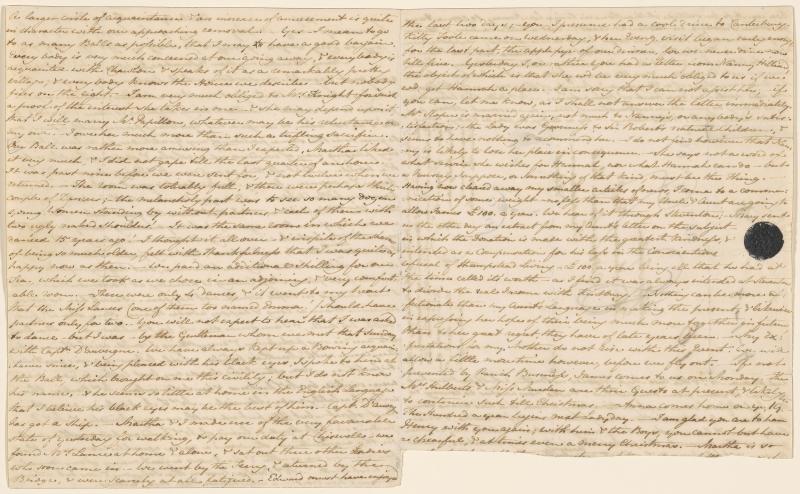 A larger circle of acquaintance & an increase of amusement is quite
in character with our approaching removal. — Yes — I mean to go
to as many Balls as possible, that I may have a good bargain.
Every body is very much concerned at our going away, & every body is
acquainted with Chawton & speaks of it as a remarkably pretty
village; & every body knows the House we describe — but nobody
fixes on the right. — I am very much obliged to Mrs Knight for such
a proof of the interest she takes in me — & she may depend upon it,
that I will marry Mr Papillon, whatever may be his reluctance or
my own. — I owe her much more than such a trifling sacrifice. —
Our Ball was rather more amusing than I expected, Martha liked
it very much, & I did not gape till the last quarter of an hour. —
It was past nine before we were sent for, & not twelve when we
returned. — The room was tolerably full, & there were perhaps thirty
couple of Dancers; — the melancholy part was, to see so many dozen
young Women standing by without partners, & each of them with
two ugly naked shoulders! — It was the same room in which we
danced 15 years ago! — I thought it all over — & in spite of the shame
of being so much older, felt with Thankfulness that I was quite as
happy now as then. — We paid an additional shilling for our
Tea, which we took as we chose in an adjoining, & very comfort-
able room. — There were only 4 dances, & it went to my heart
that the Miss Lances (one of them too named Emma!) should have
partners only for two. — You will not expect to hear that I was asked
to dance — but I was — by the Gentleman whom we met that Sunday
with Captn D'auvergne. We have always kept up a Bowing acquain-
tance since, & being pleased with his black eyes, I spoke to him at
the Ball, which brought on me this civility; but I do not know
his name, — & he seems so little at home in the English Language
that I believe his black eyes may be the best of him. — Captn D'auvergne
has got a Ship. — Martha & I made use of the very favourable
state of yesterday for walking, to pay our duty at Chiswell — we
found Mrs Lance at home & alone, & sat out three other Ladies
who soon came in. — We went by the Ferry, & returned by the
Bridge, & were scarcely at all fatigued. — Edward must have enjoyed
the last two days; — you, I presume had a cool drive to Canterbury.
Kitty Foote came on Wednesday, & her Evening visit began early enough
for the last part, the apple pye of our dinner, for we never dine now
till five. — Yesterday I, or rather you had a letter from Nanny Hilliard,
the object of which is that she wd be very much obliged to us if we
wd get Hannah a place. — I am sorry that I can not assist her; — if
you can, let me know, as I shall not answer the letter immediately.
Mr Sloper is married again, not much to Nanny's, or anybody's satis-
faction; — the Lady was Governess to Sir Robert's natural Children, &
seems to have nothing to recommend her. — I do not find however that Nan-
ny is likely to lose her place in consequence. — She says not a word of
what service she wishes for Hannah, nor what Hannah can do — but
a Nursery I suppose, or something of that kind, must be the Thing. —
Having now cleared away my smaller articles of news, I come to a commu-
nication of some weight — no less than that my Uncle & Aunt are going to
allow James £100. a year. We hear of it through Steventon; — Mary sent
us the other day an extract from my Aunt's letter on the subject
in which the Donation is made with the greatest kindness, &
intended as a Compensation for his loss in the Conscientious
refusal of Hampstead Living — £100. a year being all that he had at
the time called its worth — as I find it was always intended at Steventon
to divide the real Income with Kintbury. — Nothing can be more af-
fectionate than my Aunt's Language in making the present, & likewise
in expressing her hope of their being much more together in future,
than to her great regret, they have of late years been. — My Ex-
pectations for my Mother do not rise with this Event. We will
allow a little more time however, before we fly out. — If not
prevented by Parish Business, James comes to us on Monday. The
Mrs Hulberts & Miss Murden are their Guests at present, & likely
to continue such till Christmas. — Anna comes home on ye 19th. —
The Hundred a year begins next Lady-day. — I am glad you are to have
Henry with you again; with him & the Boys, you cannot but have
a chearful, & at times even a merry Christmas. — Martha is so